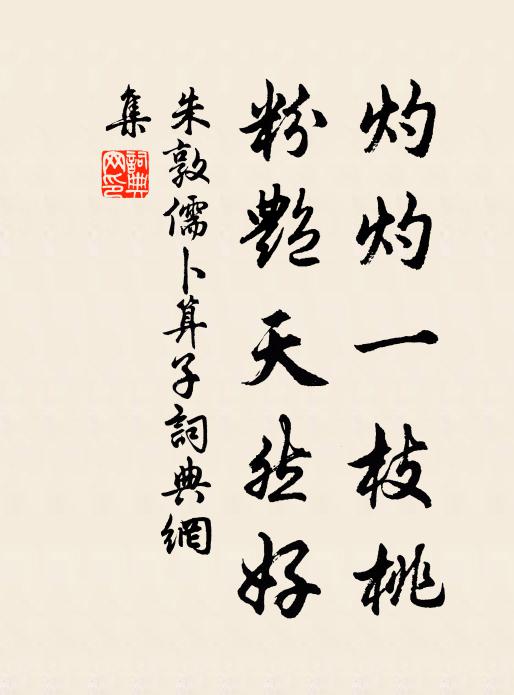 灼灼一枝桃
粉艷天然好
朱敦儒卜算子詞典網
集
詞典
网印